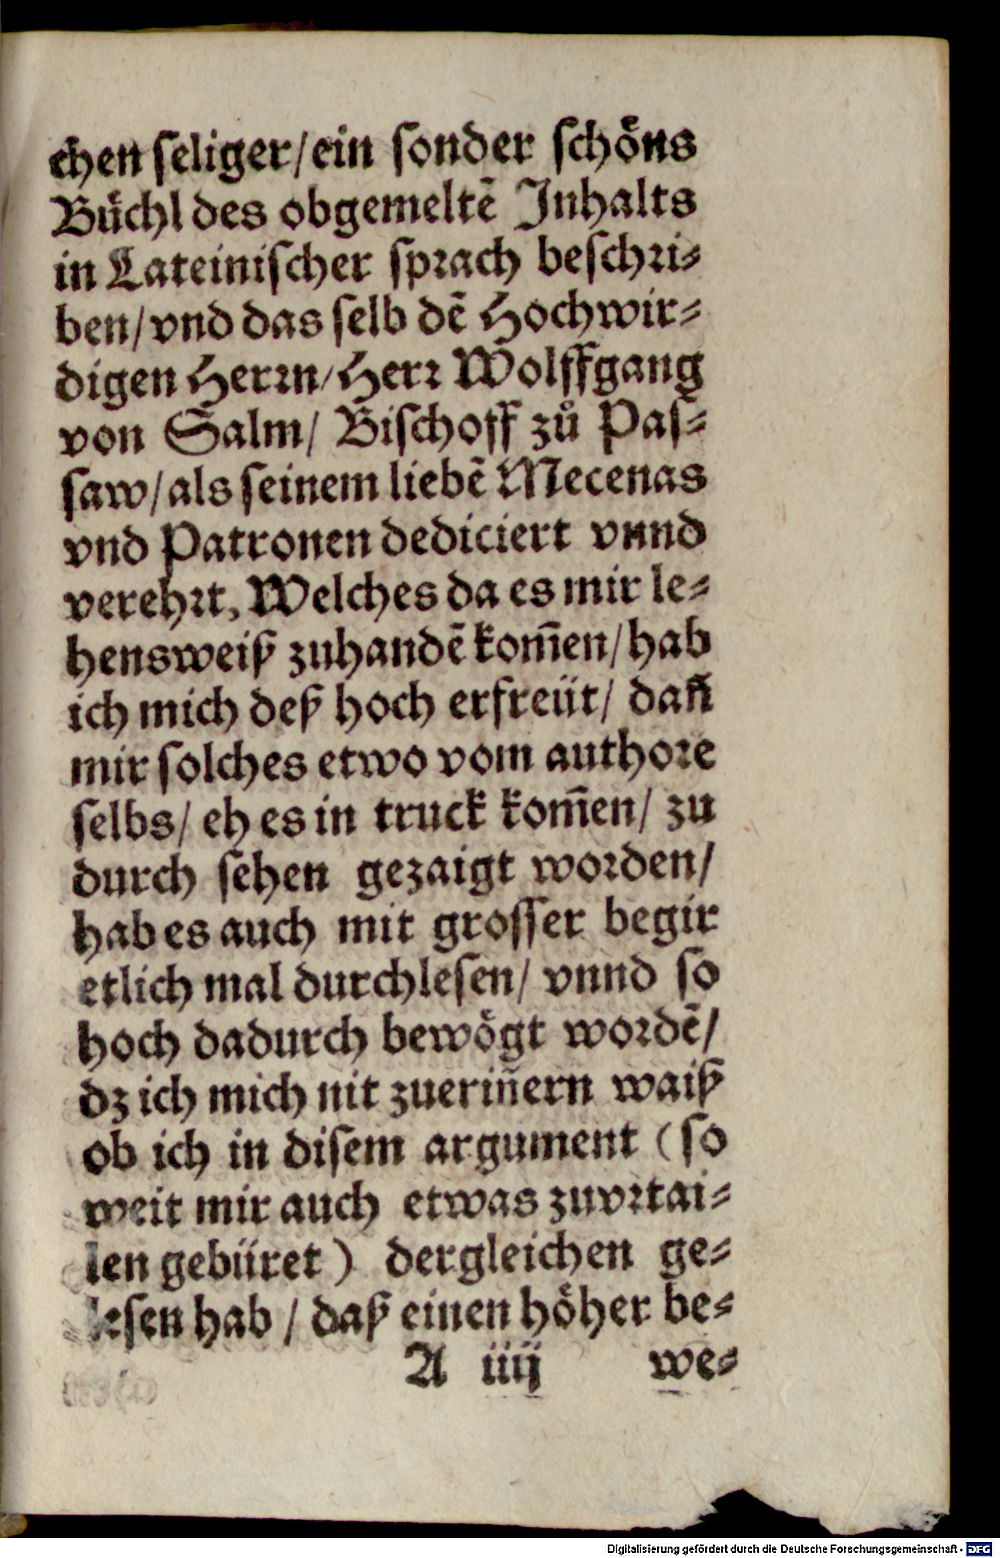 chen seliger/ein sonder schoͤns
Buͤchl des obgemeltē Inhalts
in Lateinischer sprach beschri⸗
ben/vnd das selb dē Hochwir⸗
digen Herrn/Herr Wolffgang
von Salm/ Bischoff zuͦ Pas⸗
saw/als seinem liebē Mecenas
vnd Patronen dediciert vnnd
verehrt, Welches da es mir le⸗
hensweiß zuhandē kom̄en/hab
ich mich deß hoch erfreüt/ dan̄
mir solches etwo vom authore
selbs/ eh es in truck kom̄en/ zu
durch sehen gezaigt worden/
hab es auch mit grosser begir
etlich mal durchlesen/ vnnd so
hoch dadurch bewoͤgt wordē/
dz ich mich nit zuerin̄ern waiß
ob ich in disem argument (so
weit mir auch etwas zuvrtai⸗
len gebüret) dergleichen ge⸗
lesen hab / daß einen hoͤher be⸗
A iiij we⸗
Digitalisierung gefördert durch die Deutsche Forschungsgemeinschaft - DFG